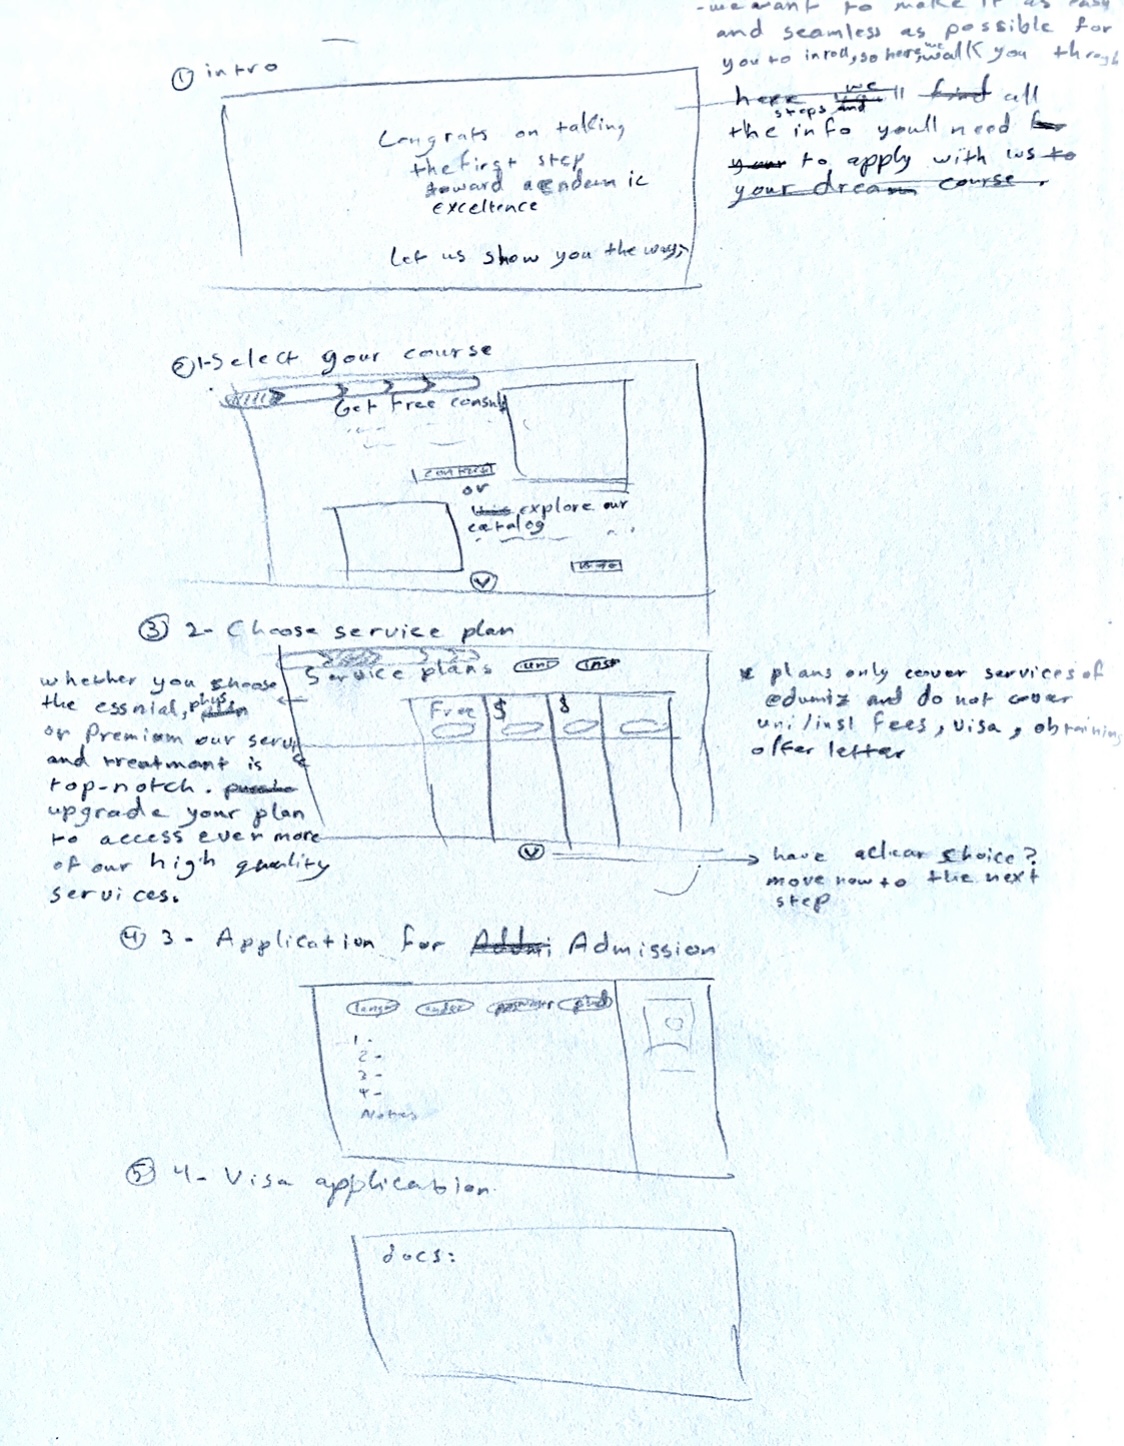 - we want to make it as easy
and seamless as possible for
you to inroll, so here, we walk you through
here we'll find all
steps and
the info youll need for
your to apply with us to
your dream course.
① intro
Congrats on taking
the first step
toward academic
excellence
Let us show you the way,
② 1-Select your course
Get free consult
contact
or
explore our
catalog
③ 2- Choose service plan
Service plans uni inst
Free $ $
whether you choose
the essnial, plus
or Premium our servi
and treatmant is
top-notch.
upgrade your plan
to access ever more
of our high quality
services.
* plans only cover services of
edumiz and do not cover
uni/inst fees, visa, obtaining
offer letter
have a clear choice?
move now to the next
step
④ 3- Application for Admission
1 -
2 -
3 -
4 -
Notes
⑤ 4- Visa application
docs: